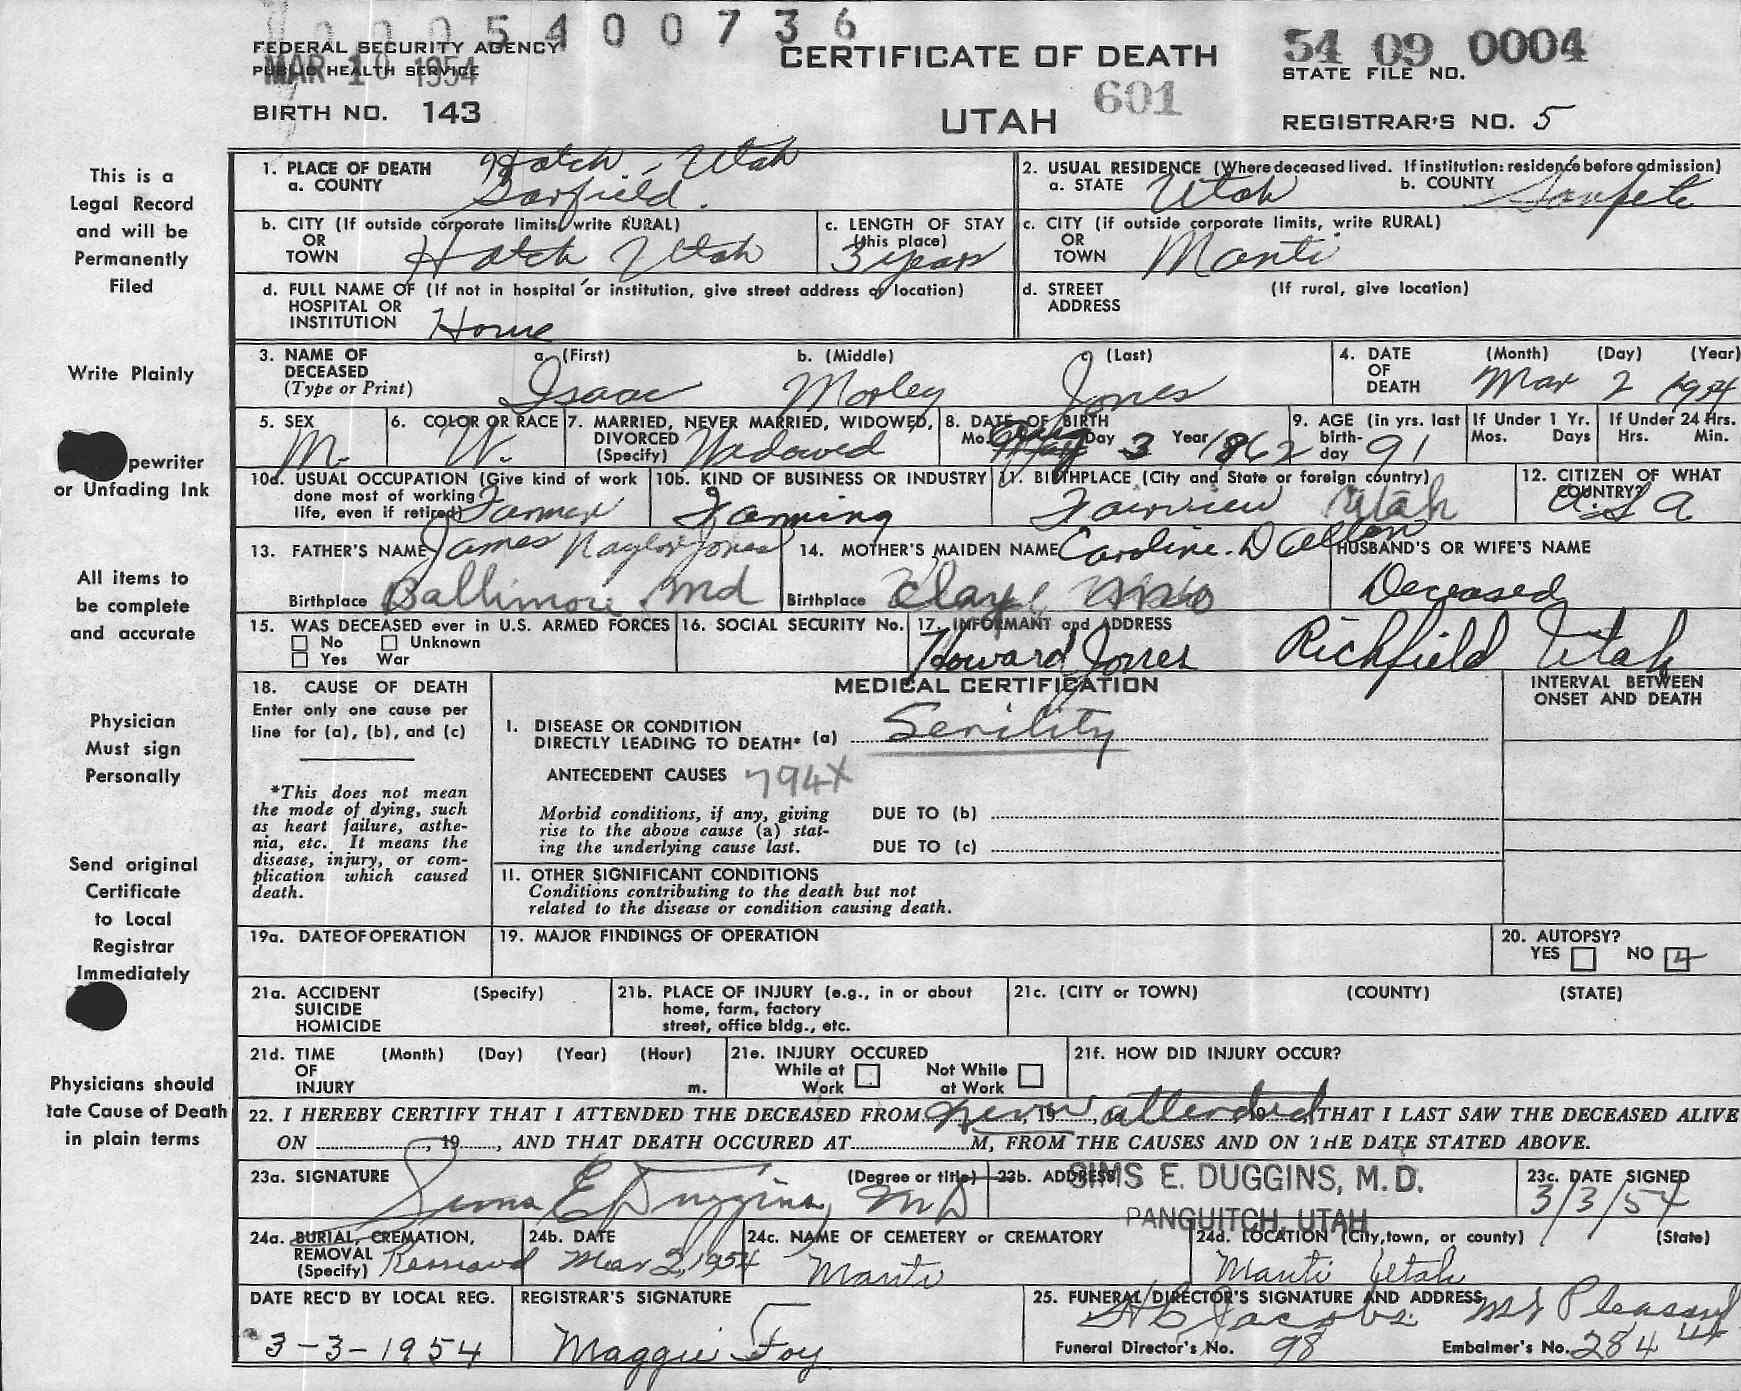 0 0 0 5 4 0 0 7 3 6
FEDERAL SECURITY AGENCY
PUBLIC HEALTH SERVICE
MAR 10 1954
BIRTH NO. 143
CERTIFICATE OF DEATH
UTAH
601
54 09 0004
STATE FILE NO.
REGISTRAR'S NO. 5
This is a
Legal Record
and will be
Permanently
Filed
Write Plainly
pewriter
or Unfading Ink
All items to
be complete
and accurate
Physician
Must sign
Personally
Send original
Certificate
to Local
Registrar
Immediately
Physicians should
tate Cause of Death
in plain terms
1. PLACE OF DEATH Hatch, Utah
a. COUNTY Garfield.
2. USUAL RESIDENCE (Where deceased lived. If institution: residence before admission)
a. STATE Utah b. COUNTY Sanpete
b. CITY (If outside corporate limits, write RURAL)
OR
TOWN Hatch Utah
c. LENGTH OF STAY
(this place)
3 years
c. CITY (if outside corporate limits, write RURAL)
OR
TOWN Manti
d. FULL NAME OF (If not in hospital or institution, give street address or location)
HOSPITAL OR
INSTITUTION Home
d. STREET (If rural, give location)
ADDRESS
3. NAME OF DECEASED
(Type or Print)
a. (First) b. (Middle) c. (Last)
Isaac Morley Jones
4. DATE OF DEATH (Month) (Day) (Year)
Mar 2 1954
5. SEX
M.
6. COLOR OR RACE
W.
7. MARRIED, NEVER MARRIED, WIDOWED,
DIVORCED
(Specify) Widowed
8. DATE OF BIRTH
Mo. Day 3 Year 1862
9. AGE (in yrs. last
birth-
day 91
If Under 1 Yr.
Mos. Days
If Under 24 Hrs.
Hrs. Min.
10a. USUAL OCCUPATION (Give kind of work
done most of working
life, even if retired) Farmer
10b. KIND OF BUSINESS OR INDUSTRY
Farming
11. BIRTHPLACE (City and State or foreign country)
Fairview Utah
12. CITIZEN OF WHAT
COUNTRY?
U.S.A
13. FATHER'S NAME James Naylor Jones
Birthplace Baltimore Md
14. MOTHER'S MAIDEN NAME Caroline D Allen
Birthplace Clay
HUSBAND'S OR WIFE'S NAME
Deceased
15. WAS DECEASED ever in U.S. ARMED FORCES
No Unknown
Yes War
16. SOCIAL SECURITY No.
17. INFORMANT and ADDRESS
Howard Jones Richfield Utah
18. CAUSE OF DEATH
Enter only one cause per
line for (a), (b), and (c)
*This does not mean
the mode of dying, such
as heart failure, asthe-
nia, etc. It means the
disease, injury, or com-
plication which caused
death.
MEDICAL CERTIFICATION
INTERVAL BETWEEN
ONSET AND DEATH
I. DISEASE OR CONDITION
DIRECTLY LEADING TO DEATH* (a) Senility
ANTECEDENT CAUSES 794X
Morbid conditions, if any, giving
rise to the above cause (a) stat-
ing the underlying cause last.
DUE TO (b)
DUE TO (c)
11. OTHER SIGNIFICANT CONDITIONS
Conditions contributing to the death but not
related to the disease or condition causing death.
19a. DATE OF OPERATION
19. MAJOR FINDINGS OF OPERATION
20. AUTOPSY?
YES NO
21a. ACCIDENT (Specify)
SUICIDE
HOMICIDE
21b. PLACE OF INJURY (e.g., in or about
home, farm, factory
street, office bldg., etc.
21c. (CITY or TOWN) (COUNTY) (STATE)
21d. TIME (Month) (Day) (Year) (Hour)
OF
INJURY m.
21e. INJURY OCCURED
While at Work Not While at Work
21f. HOW DID INJURY OCCUR?
22. I HEREBY CERTIFY THAT I ATTENDED THE DECEASED FROM never, 19 attended 19 THAT I LAST SAW THE DECEASED ALIVE
ON , 19 , AND THAT DEATH OCCURED AT M, FROM THE CAUSES AND ON THE DATE STATED ABOVE.
23a. SIGNATURE (Degree or title)
Sims E Duggins, MD
23b. ADDRESS
SIMS E. DUGGINS, M.D.
PANGUITCH, UTAH
23c. DATE SIGNED
3/3/54
24a. BURIAL, CREMATION,
REMOVAL
(Specify) Removal
24b. DATE
Mar 2, 1954
24c. NAME OF CEMETERY OR CREMATORY
Manti
24d. LOCATION (City, town, or county) (State)
Manti Utah
DATE REC'D BY LOCAL REG.
3-3-1954
REGISTRAR'S SIGNATURE
Maggie Foy
25. FUNERAL DIRECTOR'S SIGNATURE AND ADDRESS
Jacobs Mt Pleasant
Funeral Director's No. 98 Embalmer's No. 284